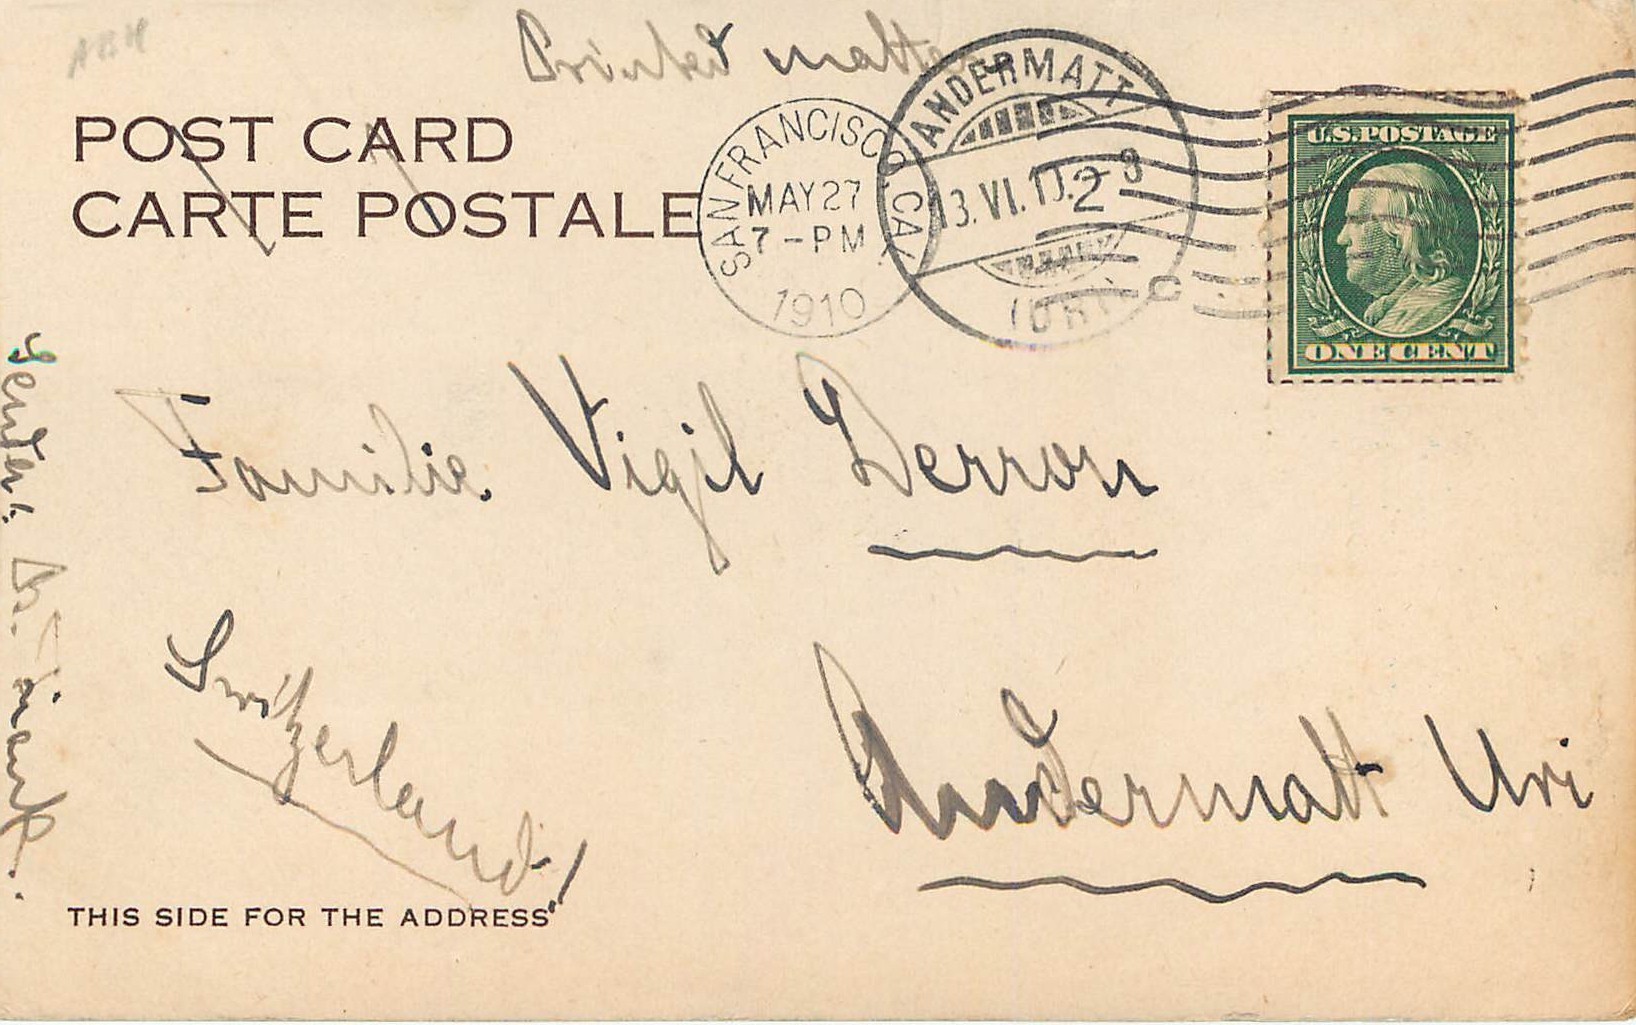 Printed matter
POST CARD
CARTE POSTALE
SAN FRANCISCO, CAL.
MAY 27
7-PM
1910
ANDERMATT
13.VI.10.-8
2
(URI)
U.S. POSTAGE
ONE CENT
Familie Vigil Derron
Switzerland!
Andermatt Uri
THIS SIDE FOR THE ADDRESS
Sender: